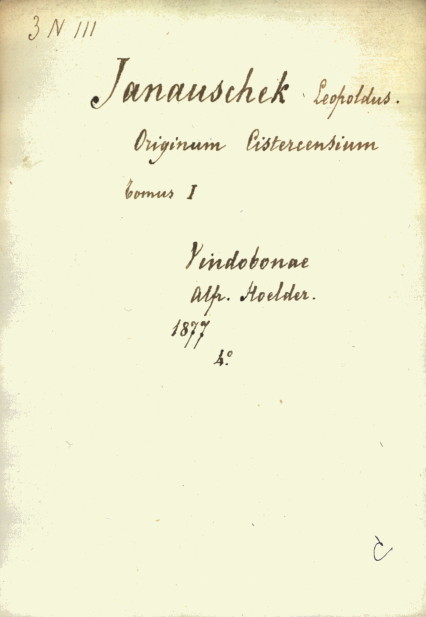 3 N III
Janauschek Leopoldus.
Originum Cistercensium
Tomus I
Vindobonae
Alf. Hoelder.
1877
4°
č